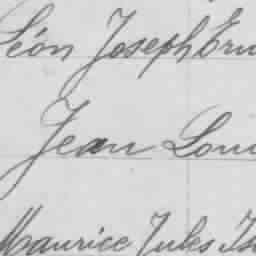 Léon Joseph Ern
Jean Loui
Maurice Jules Is